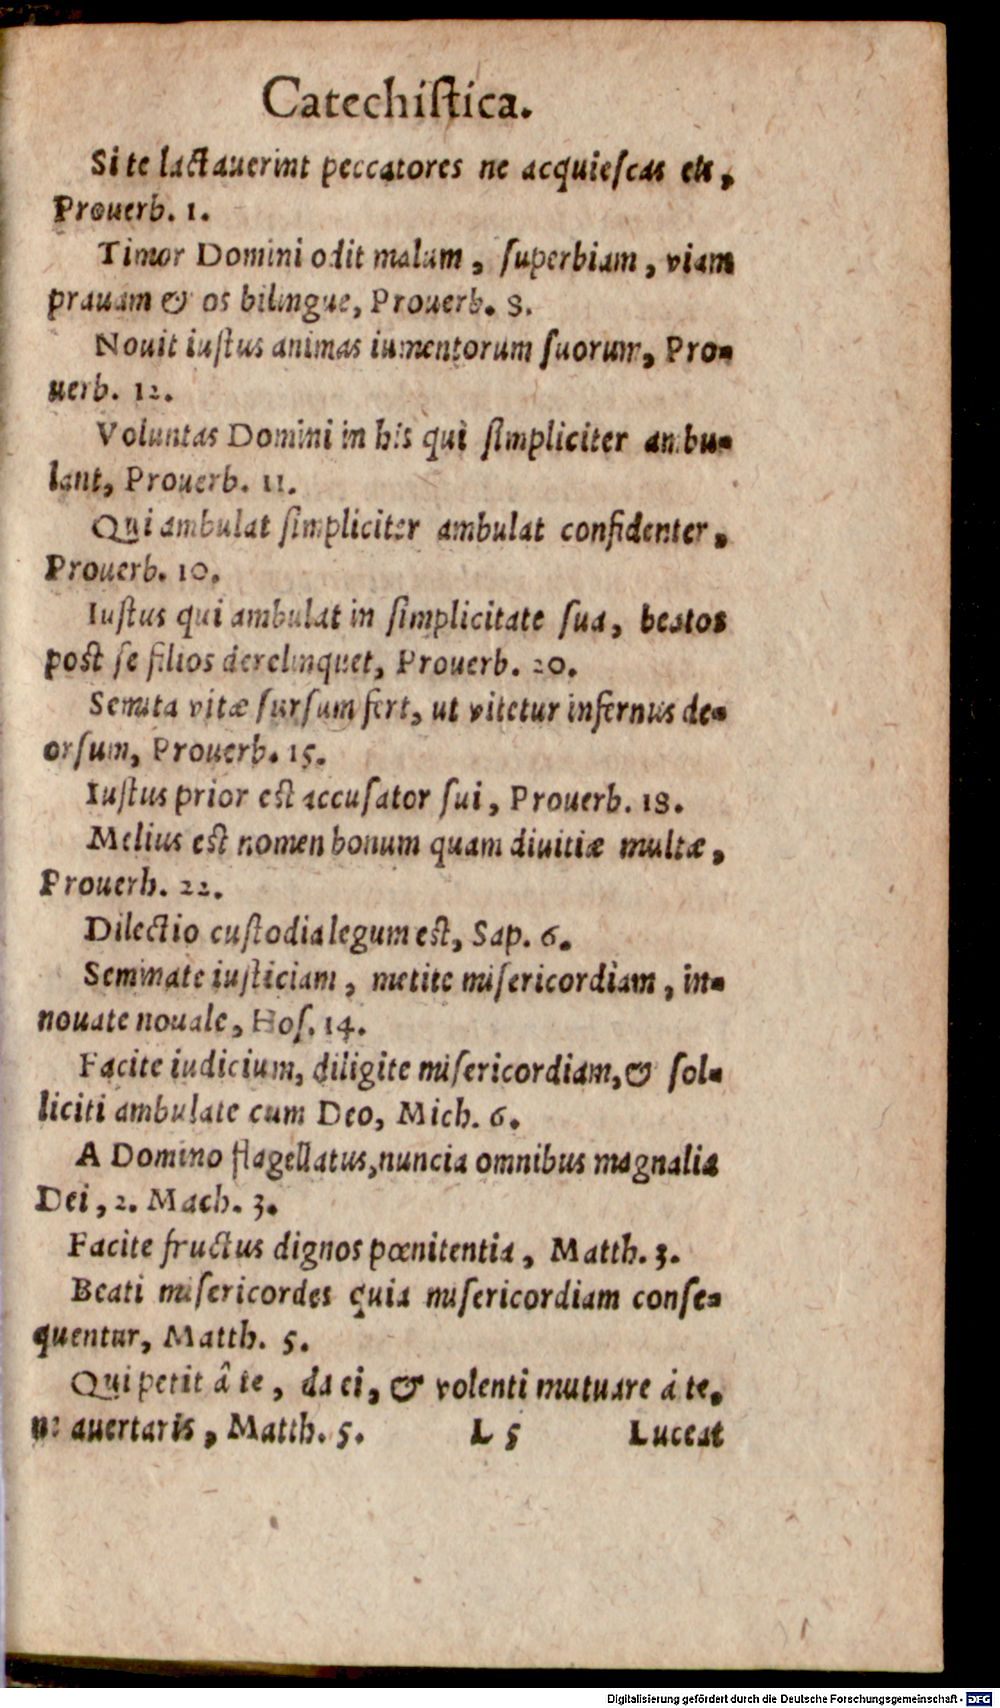 Catechiſtica.
Si te lactauerint peccatores ne acquieſcas eis,
Prouerb. 1.
Timor Domini odit malum, ſuperbiam, viam
prauam & os bilingue, Prouerb. 8.
Nouit iuſtus animas iumentorum ſuorum, Pro-
uerb. 12.
Voluntas Domini in his qui ſimpliciter ambu-
lant, Prouerb. 11.
Qui ambulat ſimpliciter ambulat confidenter,
Prouerb. 10.
Iuſtus qui ambulat in ſimplicitate ſua, beatos
post ſe filios derelinquet, Prouerb. 20.
Semita vitæ ſurſum fert, ut vitetur infernus de-
orſum, Prouerb. 15.
Iuſtus prior est accuſator ſui, Prouerb. 18.
Melius est nomen bonum quam diuitiæ multæ,
Prouerb. 22.
Dilectio cuſtodia legum est, Sap. 6.
Seminate iuſticiam, metite miſericordiam, in-
nouate nouale, Hoſ. 14.
Facite iudicium, diligite miſericordiam, & ſol-
liciti ambulate cum Deo, Mich. 6.
A Domino flagellatus, nuncia omnibus magnalia
Dei, 2. Mach. 3.
Facite fructus dignos pœnitentia, Matth. 3.
Beati miſericordes quia miſericordiam conſe-
quentur, Matth. 5.
Qui petit â te, da ei, & volenti mutuare á te,
ne auertaris, Matth. 5. L 5 Luceat
Digitalisierung gefördert durch die Deutsche Forschungsgemeinschaft - DFG